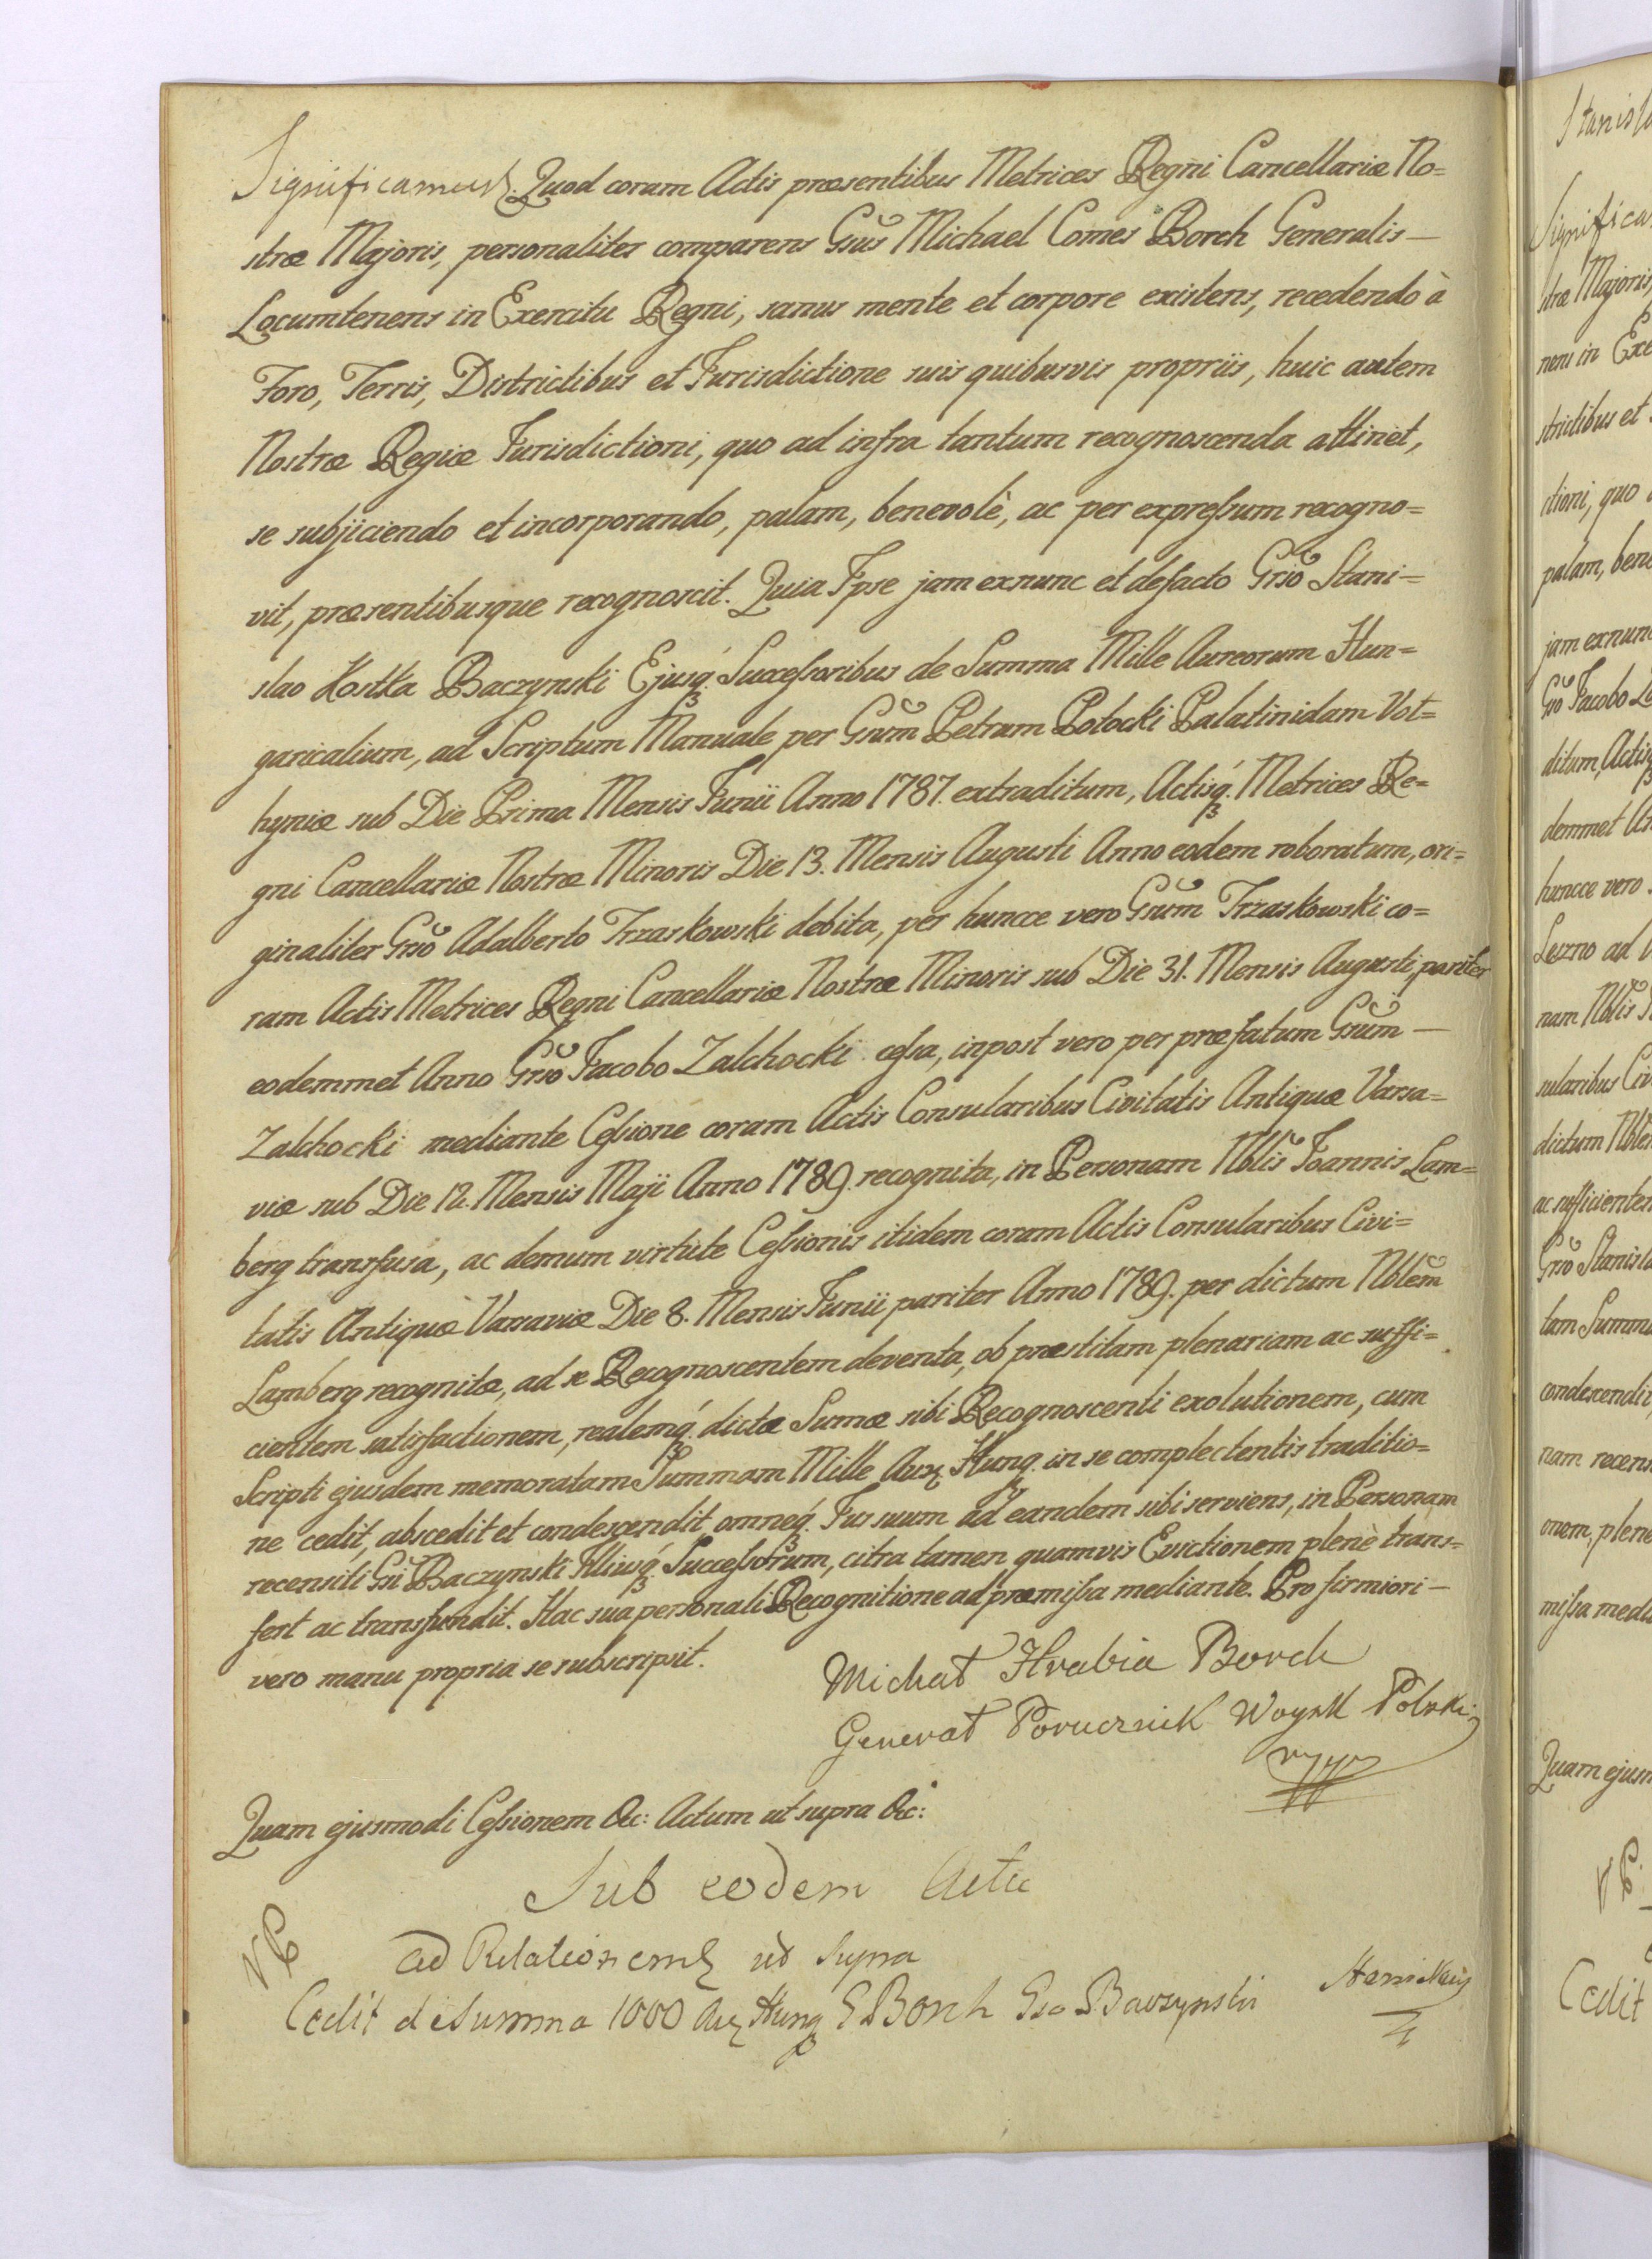 Significamus. Quod coram Actis præsentibus Metrices Regni Cancellariæ No=
stræ Majoris, personaliter comparens Gsus Michael Comes Borch Generalis—
Locumtenens in Exercitu Regni, sanus mente et corpore existens, recedendo à
Foro, Terris, Districtibus et Jurisdictione suis quibusvis propriis, huic autem
Nostræ Regiæ Jurisdictioni, quo ad infra tantum recognoscenda attinet,
se subjiciendo et incorporando, palam, benevolè, ac per expreſsum recogno=
vit, præsentibusque recognoscit. Quia Ipse jam exnunc et defacto Gsso Stani=
slao Kostka Baczynski Ejusq́. Succeſsoribus de Summa Mille Aureorum Hun=
garicalium, ad Scriptum Manuale per Gsum Petrum Potocki Palatinidam Vol=
hyniæ sub Die Prima Mensis Junii Anno 1787. extraditum, Actisq́. Metrices Re=
gni Cancellariæ Nostræ Minoris Die 13. Mensis Augusti Anno eodem roboratum, ori=
ginaliter Gsso Adalberto Trzaskowski debita, per huncce vero Gsum Trzaskowski co=
ram Actis Metrices Regni Cancellariæ Nostræ Minoris sub Die 31. Mensis Augusti pariter
eodemmet Anno Gsso Jacobo Zalchocki ceſsa, inpost vero per præfatum Gsum—
Zalchocki mediante Ceſsione coram Actis Consularibus Civitatis Antiquæ Varsa=
viæ sub Die 12. Mensis Maji Anno 1789. recognita, in Personam Nblis Joannis Lam=
berg transfusa, ac demum virtute Ceſsionis itidem coram Actis Consularibus Civi=
tatis Antiquæ Varsaviæ Die 8. Mensis Junii pariter Anno 1789. per dictum Nblem
Lamberg recognitæ, ad se Recognoscentem deventa, ob præstitam plenariam ac suffi=
cientem satisfactionem, realemq́. dictæ Sumæ sibi Recognoscenti exolutionem, cum
Scripti ejusdem memoratam Summam Mille Aur. Hung. in se complectentis traditio=
ne cedit, abscedit et condescendit, omneq́. Jus suum ad eandem sibi serviens, in Personam
recensiti Gsi Baczynski Illiusq́. Succeſsorum, citra tamen quamvis Evictionem plenè trans=
fert ac transfundit. Hac sua personali Recognitione ad præmiſsa mediante. Pro firmiori—
vero manu propria se subscripsit.
Michał Hrabia Borch
Generał Porucznik Woysk Polski
Quam ejusmodi Ceſsionem &c: Actum ut supra &c:
Sub eodem Actu
ad Relationem ut Supra
Cedit de Summa 1000 Aur Hung G Borch Gso Baczynski